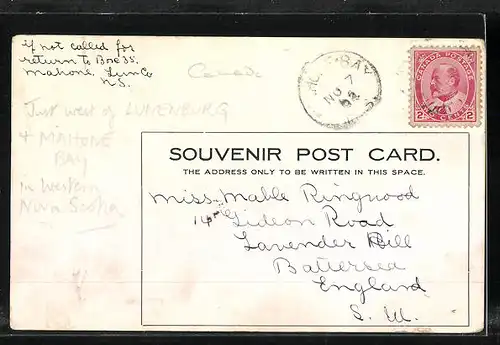 if not called for
return to Box 35.
Mahone, Lun Co
N.S.
Canada
Just west of LUNENBURG
+ MAHONE
BAY
in Western
Nova Scotia
BAY
NO 7
CANADA POSTAGE
2 CENTS 2
SOUVENIR POST CARD.
THE ADDRESS ONLY TO BE WRITTEN IN THIS SPACE.
Miss Mable Ringwood
14 Gideon Road
Lavender Hill
Battersea
England
S. W.